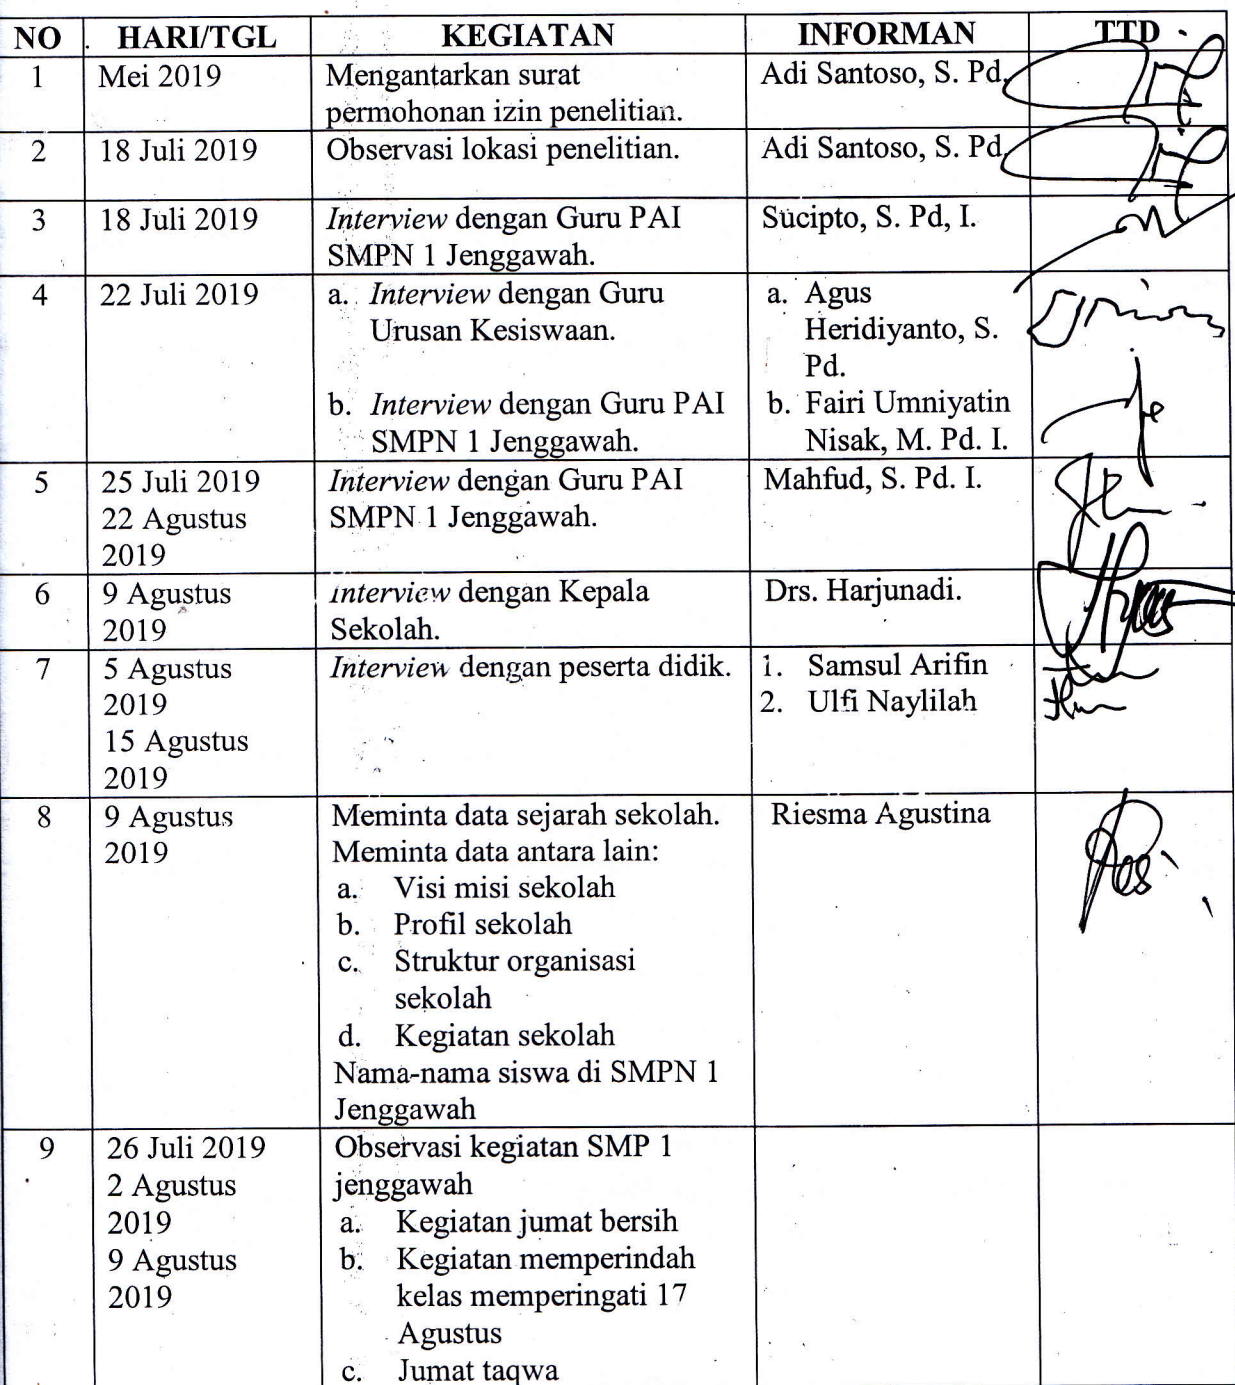 NO HARI/TGL KEGIATAN INFORMAN TTD
1 Mei 2019 Mengantarkan surat permohonan izin penelitian. Adi Santoso, S. Pd,
2 18 Juli 2019 Observasi lokasi penelitian. Adi Santoso, S. Pd,
3 18 Juli 2019 Interview dengan Guru PAI SMPN 1 Jenggawah. Sucipto, S. Pd, I.
4 22 Juli 2019
a. Interview dengan Guru
Urusan Kesiswaan.
b. Interview dengan Guru PAI
SMPN 1 Jenggawah.
a. Agus
Heridiyanto, S.
Pd.
b. Fairi Umniyatin
Nisak, M. Pd. I.
5
25 Juli 2019
22 Agustus
2019
Interview dengan Guru PAI
SMPN 1 Jenggawah.
Mahfud, S. Pd. I.
6
9 Agustus
2019
Interview dengan Kepala
Sekolah.
Drs. Harjunadi.
7
5 Agustus
2019
15 Agustus
2019
Interview dengan peserta didik.
1. Samsul Arifin
2. Ulfi Naylilah
8
9 Agustus
2019
Meminta data sejarah sekolah.
Meminta data antara lain:
a. Visi misi sekolah
b. Profil sekolah
c. Struktur organisasi
sekolah
d. Kegiatan sekolah
Nama-nama siswa di SMPN 1
Jenggawah
Riesma Agustina
9
26 Juli 2019
2 Agustus
2019
9 Agustus
2019
Observasi kegiatan SMP 1
jenggawah
a. Kegiatan jumat bersih
b. Kegiatan memperindah
kelas memperingati 17
Agustus
c. Jumat taqwa